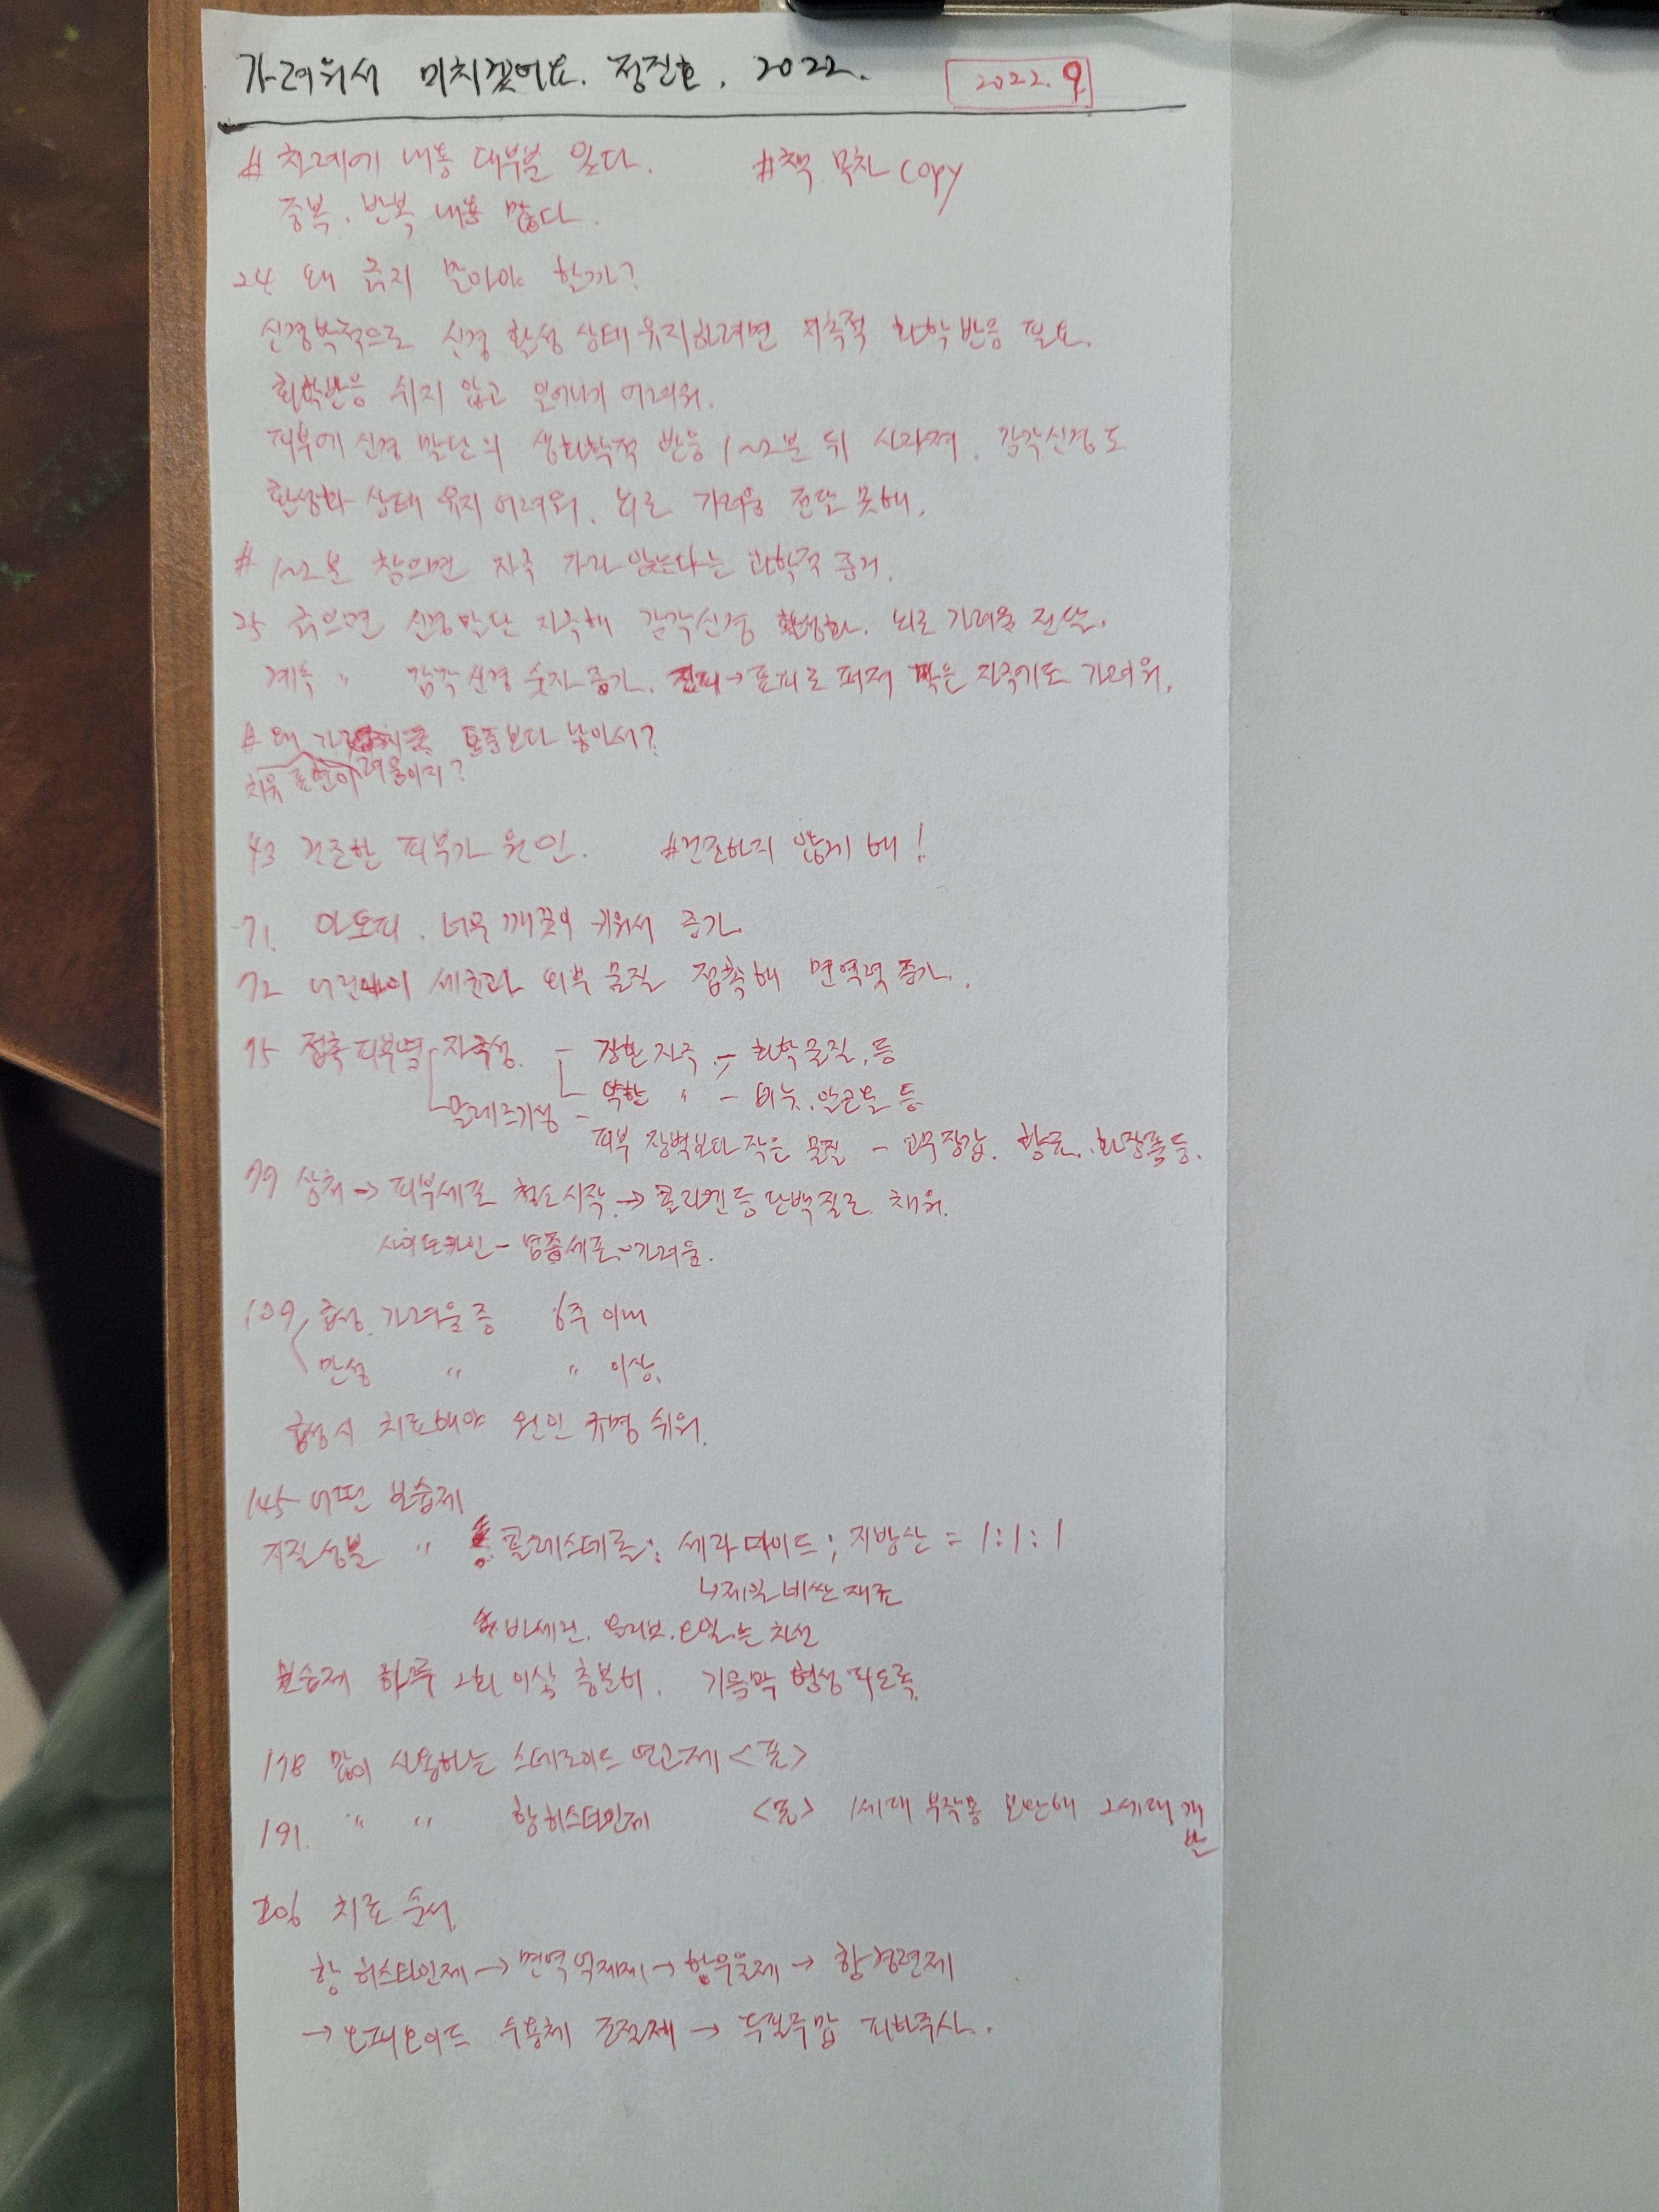 가려워서 미치겠어요. 정진호. 2022.
2022. 9.
# 차례에 내용 대부분 있다. # 책 목차 copy
중복. 반복 내용 많다.
24 왜 긁지 말아야 할까?
신경학적으로 신경 활성 상태 유지하려면 지속적 화학반응 필요.
화학반응 쉬지 않고 일어나기 어려워.
피부에 신경 말단의 생화학적 반응 1~2분 뒤 사라져. 감각신경도
활성화 상태 유지 어려워. 뇌로 가려움 전달 못해.
# 1~2분 참으면 자극 가라앉는다는 과학적 증거.
25 긁으면 신경말단 자극해 감각신경 활성화. 뇌로 가려움 전달.
계속 〃 감각신경 숫자 증가. 진피→표피로 퍼져 작은 자극에도 가려워.
# 왜 통증보다 낮아서?
치유 표현이 려움이지?
43 건조한 피부가 원인. # 건조하지 않게 해!
71. 아토피. 너무 깨끗이 키워서 증가.
72 어린아이 세균과 외부 물질 접촉해 면역력 증가.
75 접촉피부염 자극성. - 강한 자극 - 화학물질, 등
약한 〃 - 비누, 알코올 등
알레르기성 - 피부 장벽보다 작은 물질 - 고무장갑. 향료. 화장품 등.
79 상처→피부세포 청소 시작→콜라겐 등 단백질로 채워.
사이토카인 - 염증세포 - 가려움.
109 급성 가려움증 6주 이내
만성 〃 〃 이상.
급성시 치료해야 원인 규명 쉬워.
145 어떤 보습제
지질성분 〃 콜레스테롤 : 세라마이드 : 지방산 = 1:1:1
↳제일 비싼 재료
바세린. 올리브.오일.는 차선
보습제 하루 2회 이상 충분히. 기름막 형성되도록
178 많이 사용하는 스테로이드 연고제 <표>
191. 〃 〃 항히스타민제 <표> 1세대 부작용 보완해 2세대 개발
206 치료 순서.
항히스타민제→면역억제제→항우울제→항경련제
→오피오이드 수용체 조절제→듀필루맙 피하주사.